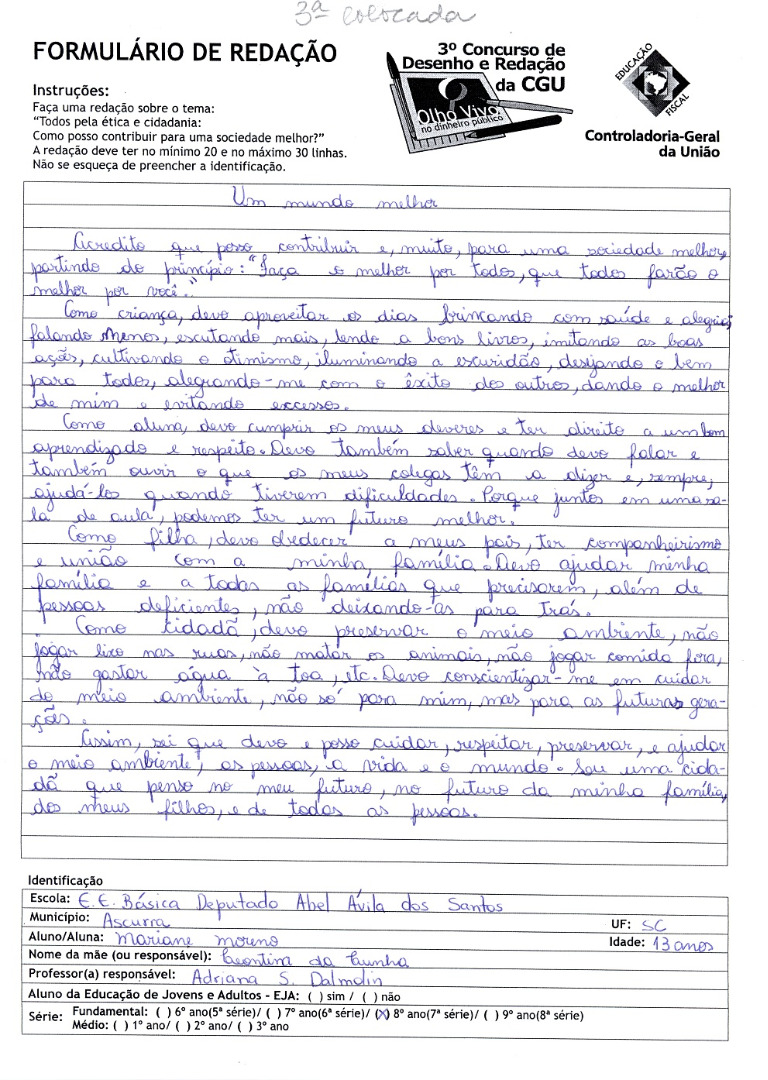 3ª colocada
FORMULÁRIO DE REDAÇÃO
Instruções:
Faça uma redação sobre o tema:
“Todos pela ética e cidadania:
Como posso contribuir para uma sociedade melhor?”
A redação deve ter no mínimo 20 e no máximo 30 linhas.
Não se esqueça de preencher a identificação.
3º Concurso de
Desenho e Redação
da CGU
Olho Vivo
no dinheiro público
EDUCAÇÃO
FISCAL
Controladoria-Geral
da União
Um mundo melhor
Acredito que posso contribuir e, muito, para uma sociedade melhor,
partindo do princípio: "Faça o melhor por todos, que todos farão o
melhor por você."
Como criança, devo aproveitar os dias brincando com saúde e alegria,
falando menos, escutando mais, lendo a bons livros, imitando as boas
ações, cultivando o otimismo, iluminando a escuridão, desejando o bem
para todos, alegrando-me com o êxito dos outros, dando o melhor
de mim e evitando excessos.
Como aluna, devo cumprir os meus deveres e ter direito a um bom
aprendizado e respeito. Devo também saber quando devo falar e
também ouvir o que os meus colegas têm a dizer e, sempre,
ajudá-los quando tiverem dificuldades. Porque juntos em uma sa-
la de aula, podemos ter um futuro melhor.
Como filha, devo obedecer a meus pais, ter companheirismo
e união com a minha família. Devo ajudar minha
família e a todas as famílias que precisarem, além de
pessoas deficientes, não deixando-as para trás.
Como cidadã, devo preservar o meio ambiente, não
jogar lixo nas ruas, não matar os animais, não jogar comida fora,
não gastar água à toa, etc. Devo conscientizar-me em cuidar
do meio ambiente, não só para mim, mas para as futuras gera-
ções.
Assim, sei que devo e posso cuidar, respeitar, preservar, e ajudar
o meio ambiente, as pessoas, a vida e o mundo. Sou uma cida-
dã que penso no meu futuro, no futuro da minha família,
dos meus filhos, e de todas as pessoas.
Identificação
Escola: E.E. Básica Deputado Abel Ávila dos Santos
Município: Ascurra UF: SC
Aluno/Aluna: Mariane moreno Idade: 13 anos
Nome da mãe (ou responsável): Leontina da Cunha
Professor(a) responsável: Adriana S. Dalmolin
Aluno da Educação de Jovens e Adultos - EJA: ( ) sim / ( ) não
Série: Fundamental: ( ) 6º ano(5ª série)/ ( ) 7º ano(6ª série)/ (X) 8º ano(7ª série)/ ( ) 9º ano(8ª série)
Médio: ( ) 1º ano/ ( ) 2º ano/ ( ) 3º ano